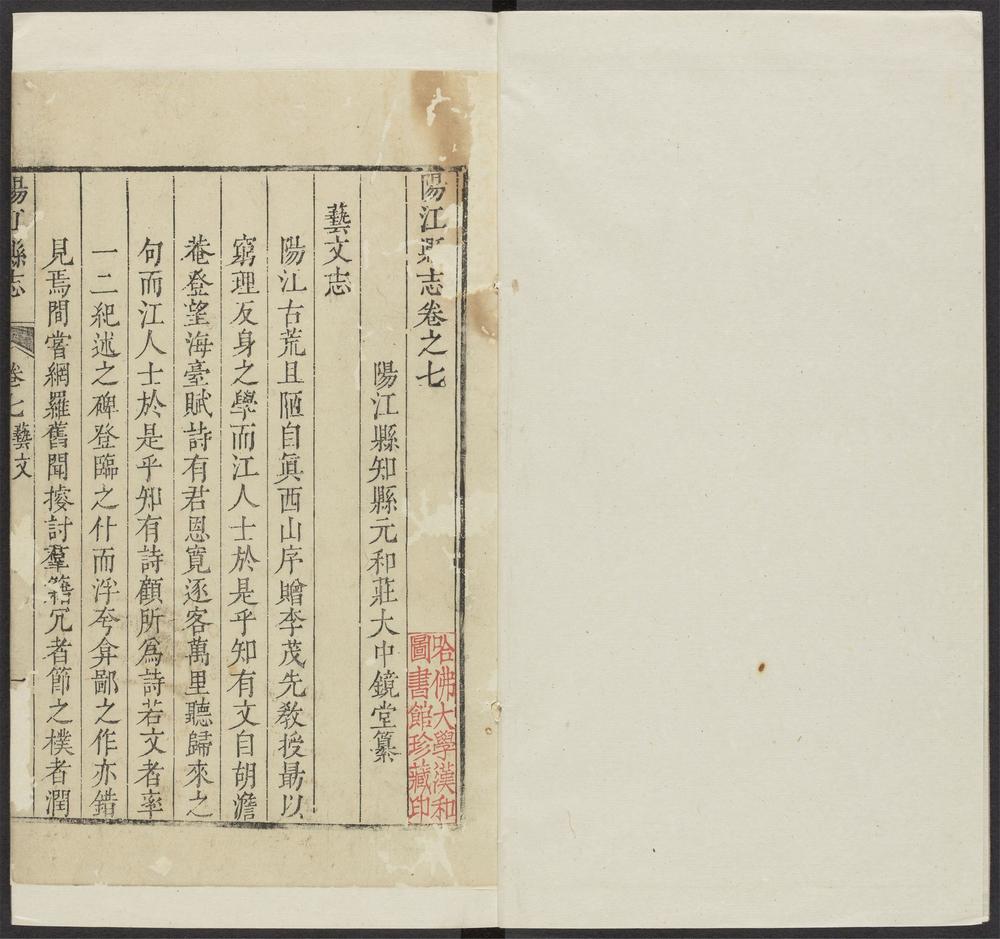 陽江縣志卷之七
陽江縣知縣元和莊大中鏡堂纂
藝文志
陽江古荒且陋自眞西山序贈李茂先敎授勗以
窮理反身之學而江人士於是乎知有文自胡澹
菴登望海臺賦詩有君恩寛逐客萬里聽歸來之
句而江人士於是乎知有詩顧所爲詩若文者率
一二紀述之碑登臨之什而浮夸弇鄙之作亦錯
見焉間嘗網羅舊聞摉討羣籍冗者節之樸者潤
陽江縣志 卷七藝文 一
哈佛大學漢和
圖書館珍藏印